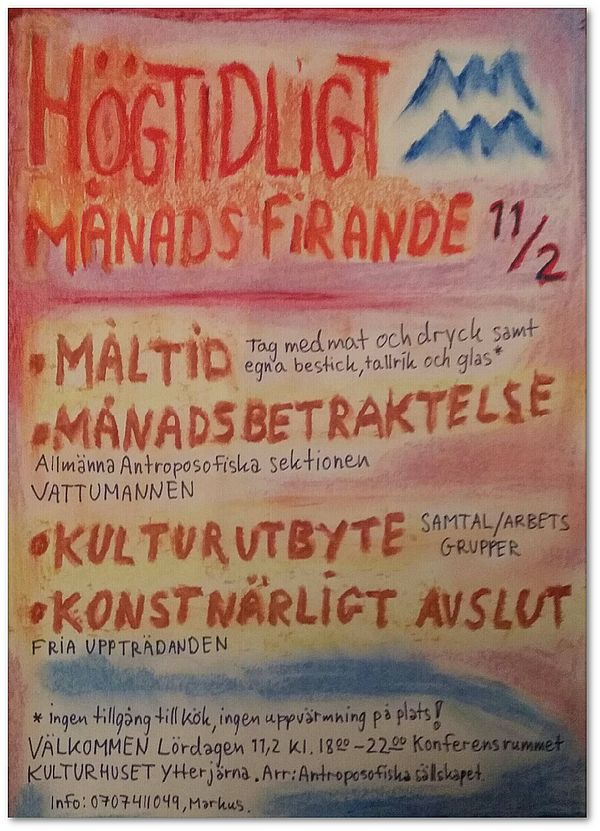 HÖGTIDLIGT
MÅNADSFIRANDE 11/2
• MÅLTID Tag med mat och dryck samt
egna bestick, tallrik och glas*
• MÅNADSBETRAKTELSE
Allmänna Antroposofiska sektionen
VATTUMANNEN
• KULTURUTBYTE SAMTAL/ARBETS
GRUPPER
• KONSTNÄRLIGT AVSLUT
FRIA UPPTRÄDANDEN
* ingen tillgång till kök, ingen uppvärmning på plats!
VÄLKOMMEN Lördagen 11,2 Kl. 18.00-22.00 Konferensrummet
KULTURHUSET Ytterjärna. Arr: Antroposofiska sällskapet.
Info: 0707411049, Markus.